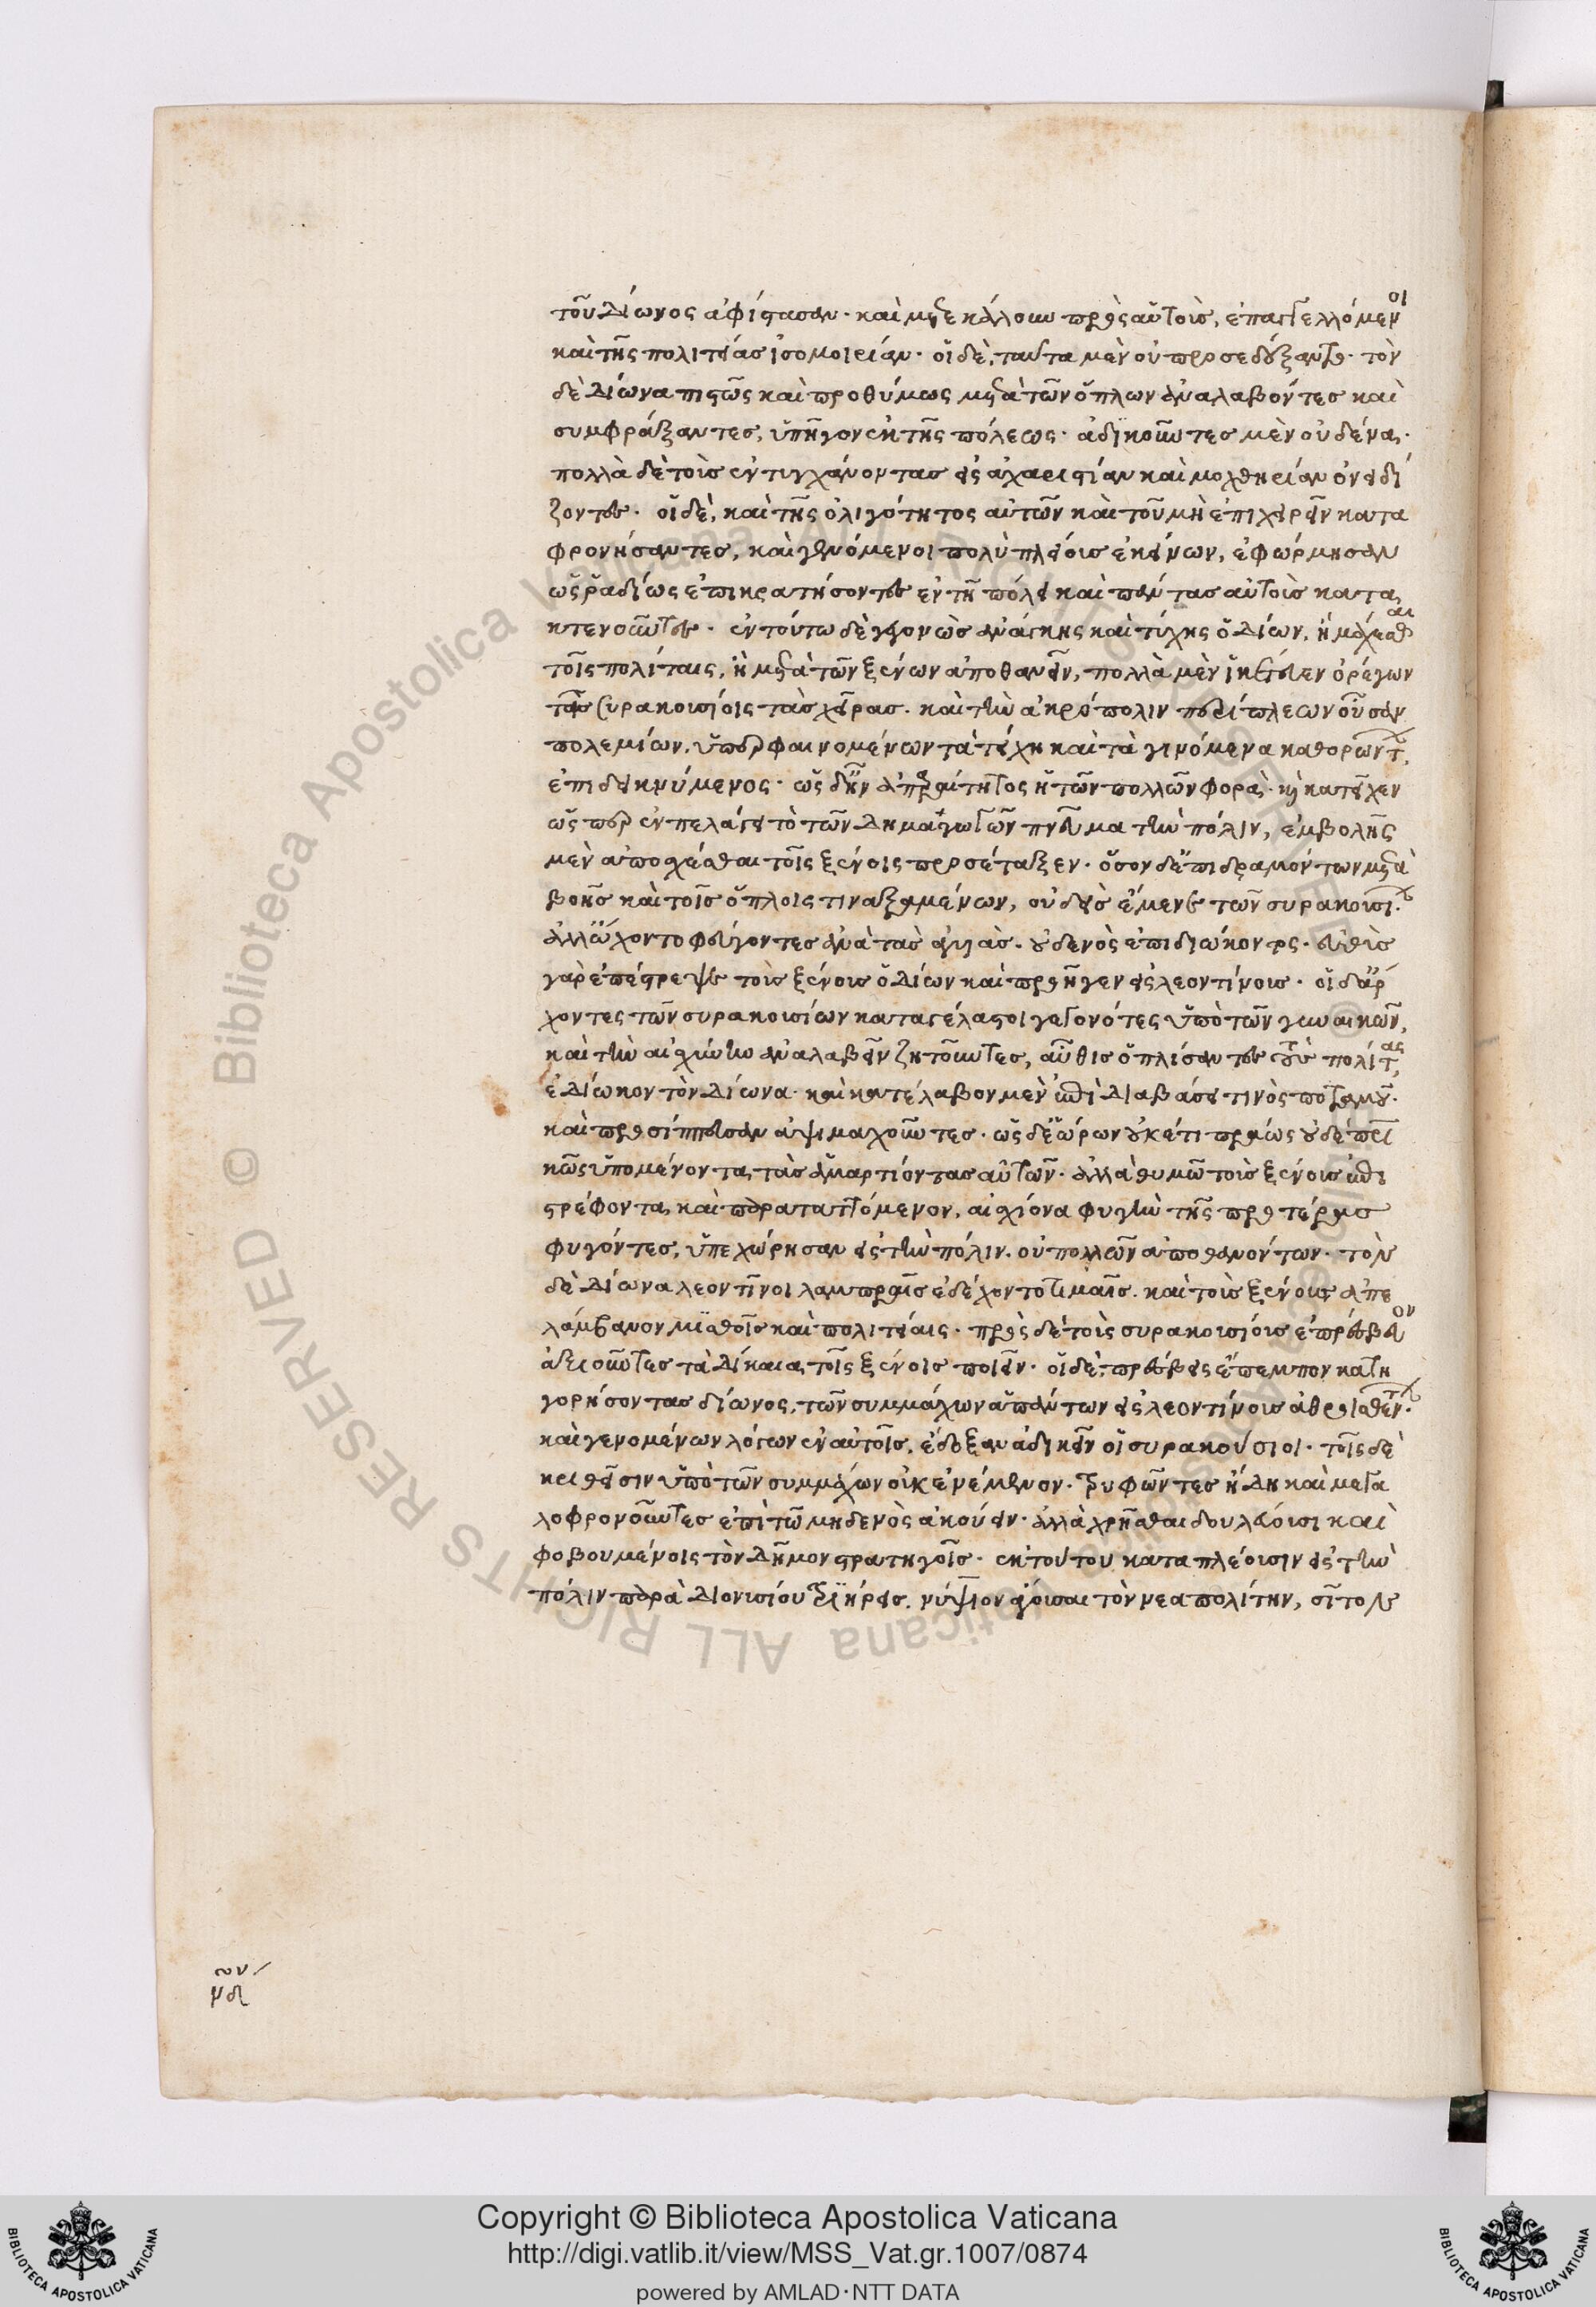 τοῦ Δίωνος ἀφίστασαν· καὶ μετεκάλουν πρὸς αὑτοὺς, ἐπαγγελλόμενοι
καὶ τῆς πολιτείας ἰσομοιρίαν· οἱ δὲ, ταῦτα μὲν οὐ προσεδέξαντο· τὸν
δὲ Δίωνα πιστῶς καὶ προθύμως μετὰ τῶν ὅπλων ἀναλαβόντες καὶ
συμφράξαντες, ὑπῆγον ἐκ τῆς πόλεως· ἀδικοῦντες μὲν οὐδένα·
πολλὰ δὲ τοὺς ἐντυγχάνοντας εἰς ἀχαριστίαν καὶ μοχθηρίαν ὀνειδί
ζοντες· οἱ δὲ, καὶ τῆς ὀλιγότητος αὐτῶν καὶ τοῦ μὴ ἐπιχειρεῖν κατα
φρονήσαντες, καὶ γενόμενοι πολὺ πλείους ἐκείνων, ἐφώρμησαν
ὡς ῥαδίως ἐπικρατήσοντες ἐν τῇ πόλει καὶ πάντας αὐτοὺς κατα
κτενοῦντες· ἐν τούτω δὲ γεγονὼς ἀνάγκης καὶ τύχης ὁ Δίων, ἢ μάχεσθαι
τοῖς πολίταις, ἢ μετὰ τῶν ξένων ἀποθανεῖν, πολλὰ μὲν ἱκέτευεν ὀρέγων
τοῖς Συρακουσίοις τὰς χεῖρας· καὶ τὴν ἀκρόπολιν περίπλεων οὖσαν
πολεμίων, ὑπερφαινομένων τὰ τείχη καὶ τὰ γινόμενα καθορώντων,
ἐπιδεικνύμενος· ὡς δ' ἦν ἀπαραίτητος ἡ τῶν πολλῶν φορὰ· καὶ κατεῖχεν
ὥσπερ ἐν πελάγει τὸ τῶν Δημαγωγῶν πνεῦμα τὴν πόλιν, ἐμβολῆς
μὲν ἀποσχέσθαι τοῖς ξένοις προσέταξεν· ὅσον δ' ἐπιδραμόντων μετὰ
βοῆς καὶ τοῖς ὅπλοις τιναξαμένων, οὐδεὶς ἔμεινε τῶν συρακουσίων·
ἀλλ' ὤχοντο φεύγοντες ἀνὰ τὰς ἀγυιὰς· οὐδενὸς ἐπιδιώκοντος· εὐθὺς
γὰρ ἐπέστρεψε τοὺς ξένους ὁ Δίων καὶ προῆγεν εἰς λεοντίνους· οἱ δ' ἄρ
χοντες τῶν συρακουσίων καταγέλαστοι γεγονότες ὑπὸ τῶν γυναικῶν,
καὶ τὴν αἰσχύνην ἀναλαβεῖν ζητοῦντες, αὖθις ὁπλίσαντες τοὺς πολίτας,
ἐδίωκον τὸν Δίωνα· καὶ κατέλαβον μὲν ἐπὶ Διαβάσει τινὸς ποταμοῦ·
καὶ προσίππευσαν ἁψιμαχοῦντες· ὡς δ' ἑώρων οὐκέτι πράως οὐδὲ πατρι
κῶς ὑπομένοντα τὰς ἁμαρτίοντας αὐτῶν· ἀλλὰ θυμῶ τοὺς ξένους ἐπι
στρέφοντα, καὶ παραταττόμενον, αἰσχίονα φυγὴν τῆς προτέρας
φυγόντες, ὑπεχώρησαν εἰς τὴν πόλιν, οὐ πολλῶν ἀποθανόντων· τὸν
δὲ Δίωνα λεοντῖνοι λαμπραῖς ἐδέχοντο τιμαῖς· καὶ τοὺς ξένους ἀπε
λάμβανον μισθοῖς καὶ πολιτείαις· πρὸς δὲ τοὺς συρακουσίους ἐπρέσβευον
ἀξιοῦντες τὰ Δίκαια τοῖς ξένοις ποιεῖν· οἱ δὲ, πρέσβεις ἔπεμπον κατη
γορήσοντας δίωνος, τῶν συμμάχων ἁπάντων εἰς λεοντίνους ἀθροισθέντων·
καὶ γενομένων λόγων ἐν αὐτοῖς, ἔδοξαν ἀδικεῖν οἱ συρακούσιοι· τοῖς δὲ
κριθεῖσιν ὑπὸ τῶν συμμάχων οὐκ ἐνέμενον· τρυφῶντες ἤΔη καὶ μεγα
λοφρονοῦντες ἐπὶ τῶ μηδενὸς ἀκούειν· ἀλλὰ χρῆσθαι δουλεύουσι καὶ
φοβουμένοις τὸν Δῆμον στρατηγοῖς· ἐκ τούτου καταπλέουσιν εἰς τὴν
πόλιν παρὰ Διονυσίου τριήρεις, νύψιον ἄγουσαι τὸν νεαπολίτην, σῖτον